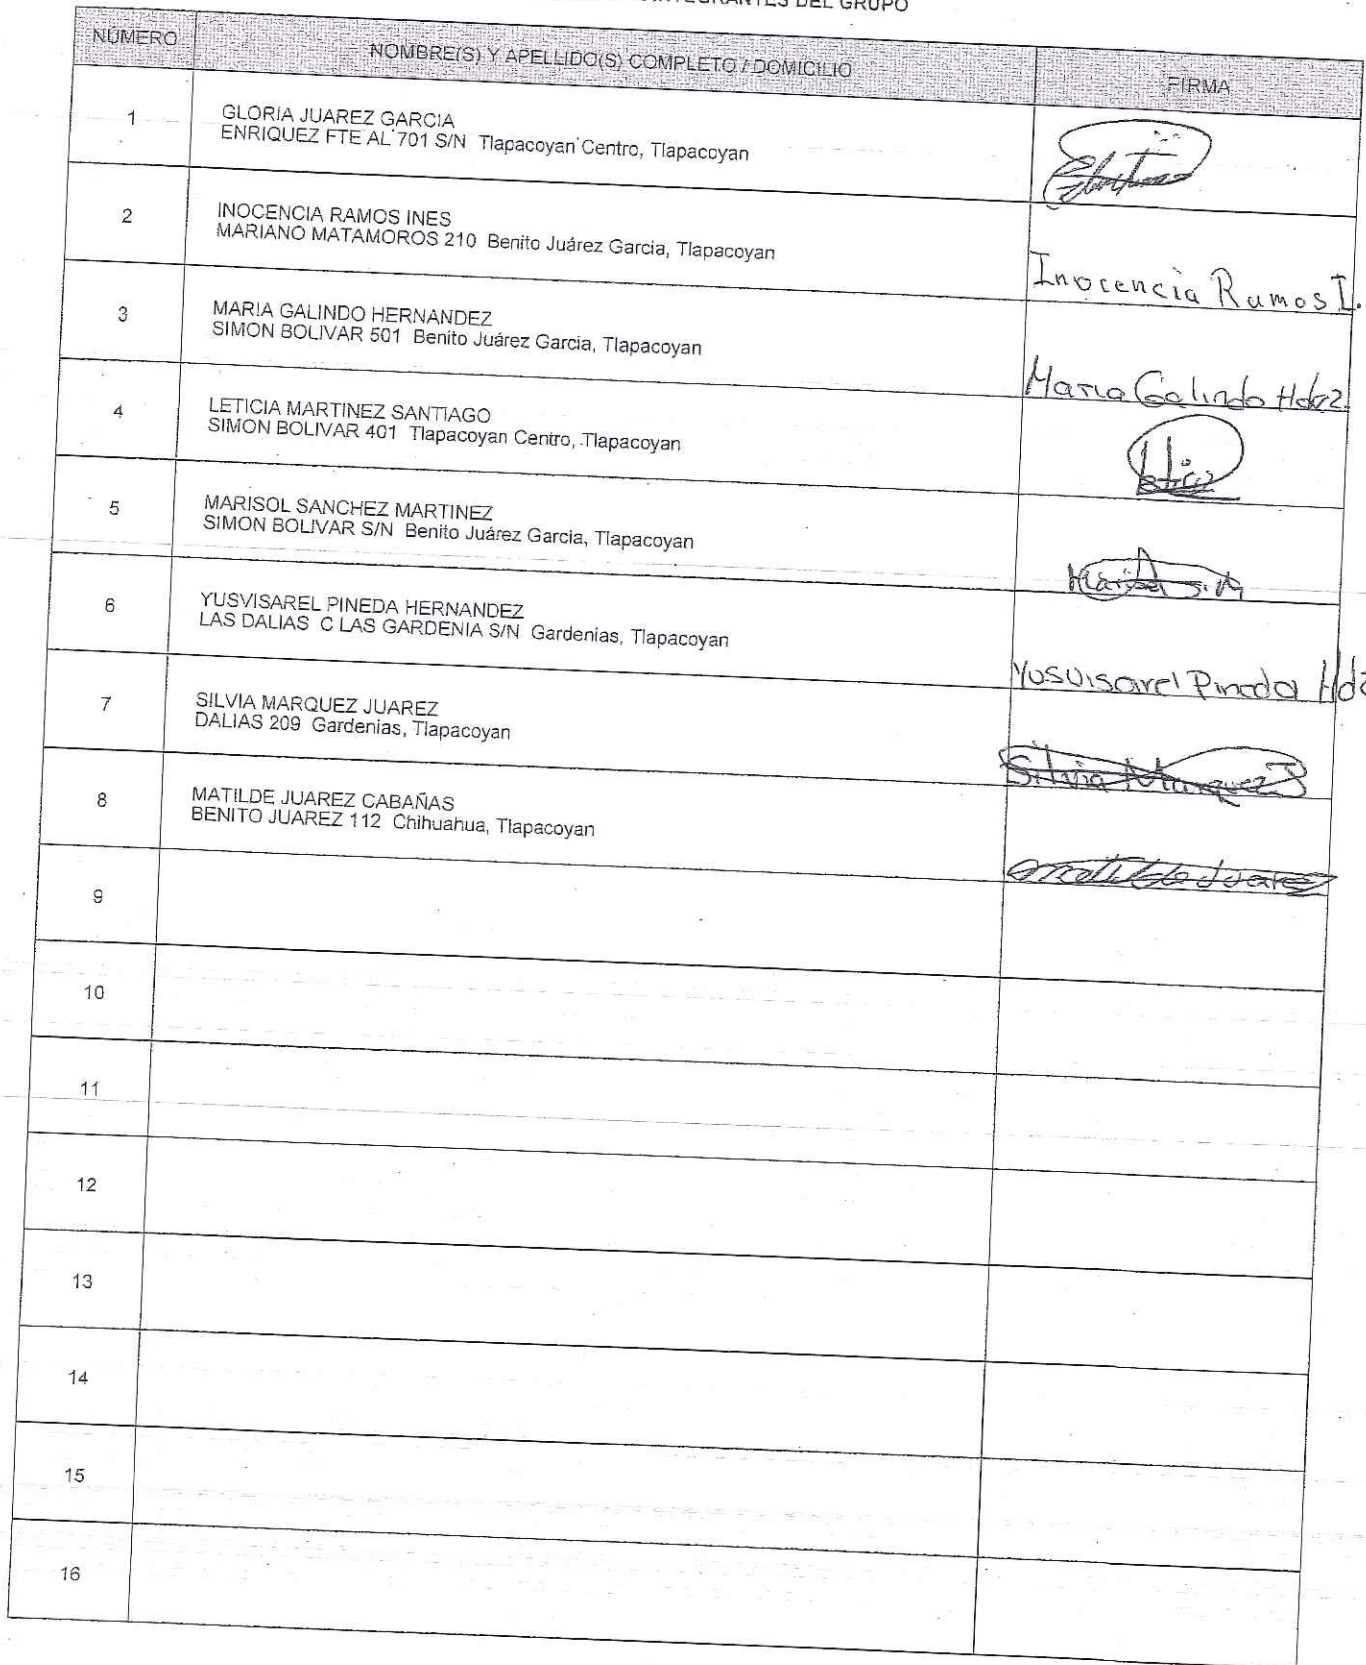 INTEGRANTES DEL GRUPO
NUMERO NOMBRE(S) Y APELLIDO(S) COMPLETO / DOMICILIO FIRMA
1 GLORIA JUAREZ GARCIA
ENRIQUEZ FTE AL 701 S/N Tlapacoyan Centro, Tlapacoyan
2 INOCENCIA RAMOS INES
MARIANO MATAMOROS 210 Benito Juárez Garcia, Tlapacoyan
Inocencia Ramos I.
3 MARIA GALINDO HERNANDEZ
SIMON BOLIVAR 501 Benito Juárez Garcia, Tlapacoyan
Maria Galindo Hdez.
4 LETICIA MARTINEZ SANTIAGO
SIMON BOLIVAR 401 Tlapacoyan Centro, Tlapacoyan
5 MARISOL SANCHEZ MARTINEZ
SIMON BOLIVAR S/N Benito Juárez Garcia, Tlapacoyan
Marisol S. M
6 YUSVISAREL PINEDA HERNANDEZ
LAS DALIAS C LAS GARDENIA S/N Gardenias, Tlapacoyan
Yusvisarel Pineda Hdz
7 SILVIA MARQUEZ JUAREZ
DALIAS 209 Gardenias, Tlapacoyan
Silvia Marquez J
8 MATILDE JUAREZ CABAÑAS
BENITO JUAREZ 112 Chihuahua, Tlapacoyan
Matilde Juarez
9
10
11
12
13
14
15
16